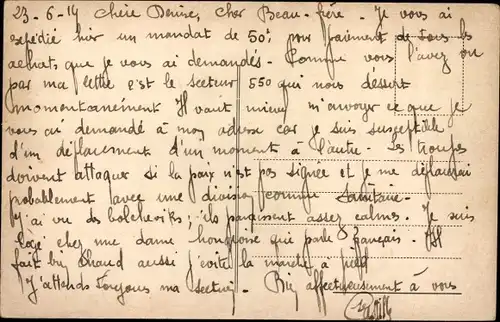 23-6-19 Chère Denise, Cher Beau-frère. Je vous ai
expédié hier un mandat de 50f pour paiement de tous les
achats que je vous ai demandés. Comme vous l'avez vu
par ma lettre c'est le secteur 550 qui nous dessert
momentanément Il vaut mieux m'envoyer ce que je
vous ai demandé à mon adresse car je suis susceptible
d'un déplacement d'un moment à l'autre. Les troupes
doivent attaquer si la paix n'est pas signée et je me déplacerai
probablement avec une division comme sanitaire.
J'ai vu des bolcheviks; ils paraissent assez calmes. Je suis
logé chez une dame hongroise qui parle français. Il
fait très chaud aussi j'évite la marche à pied
J'attends toujours ma secteur. Bien affectueusement à vous